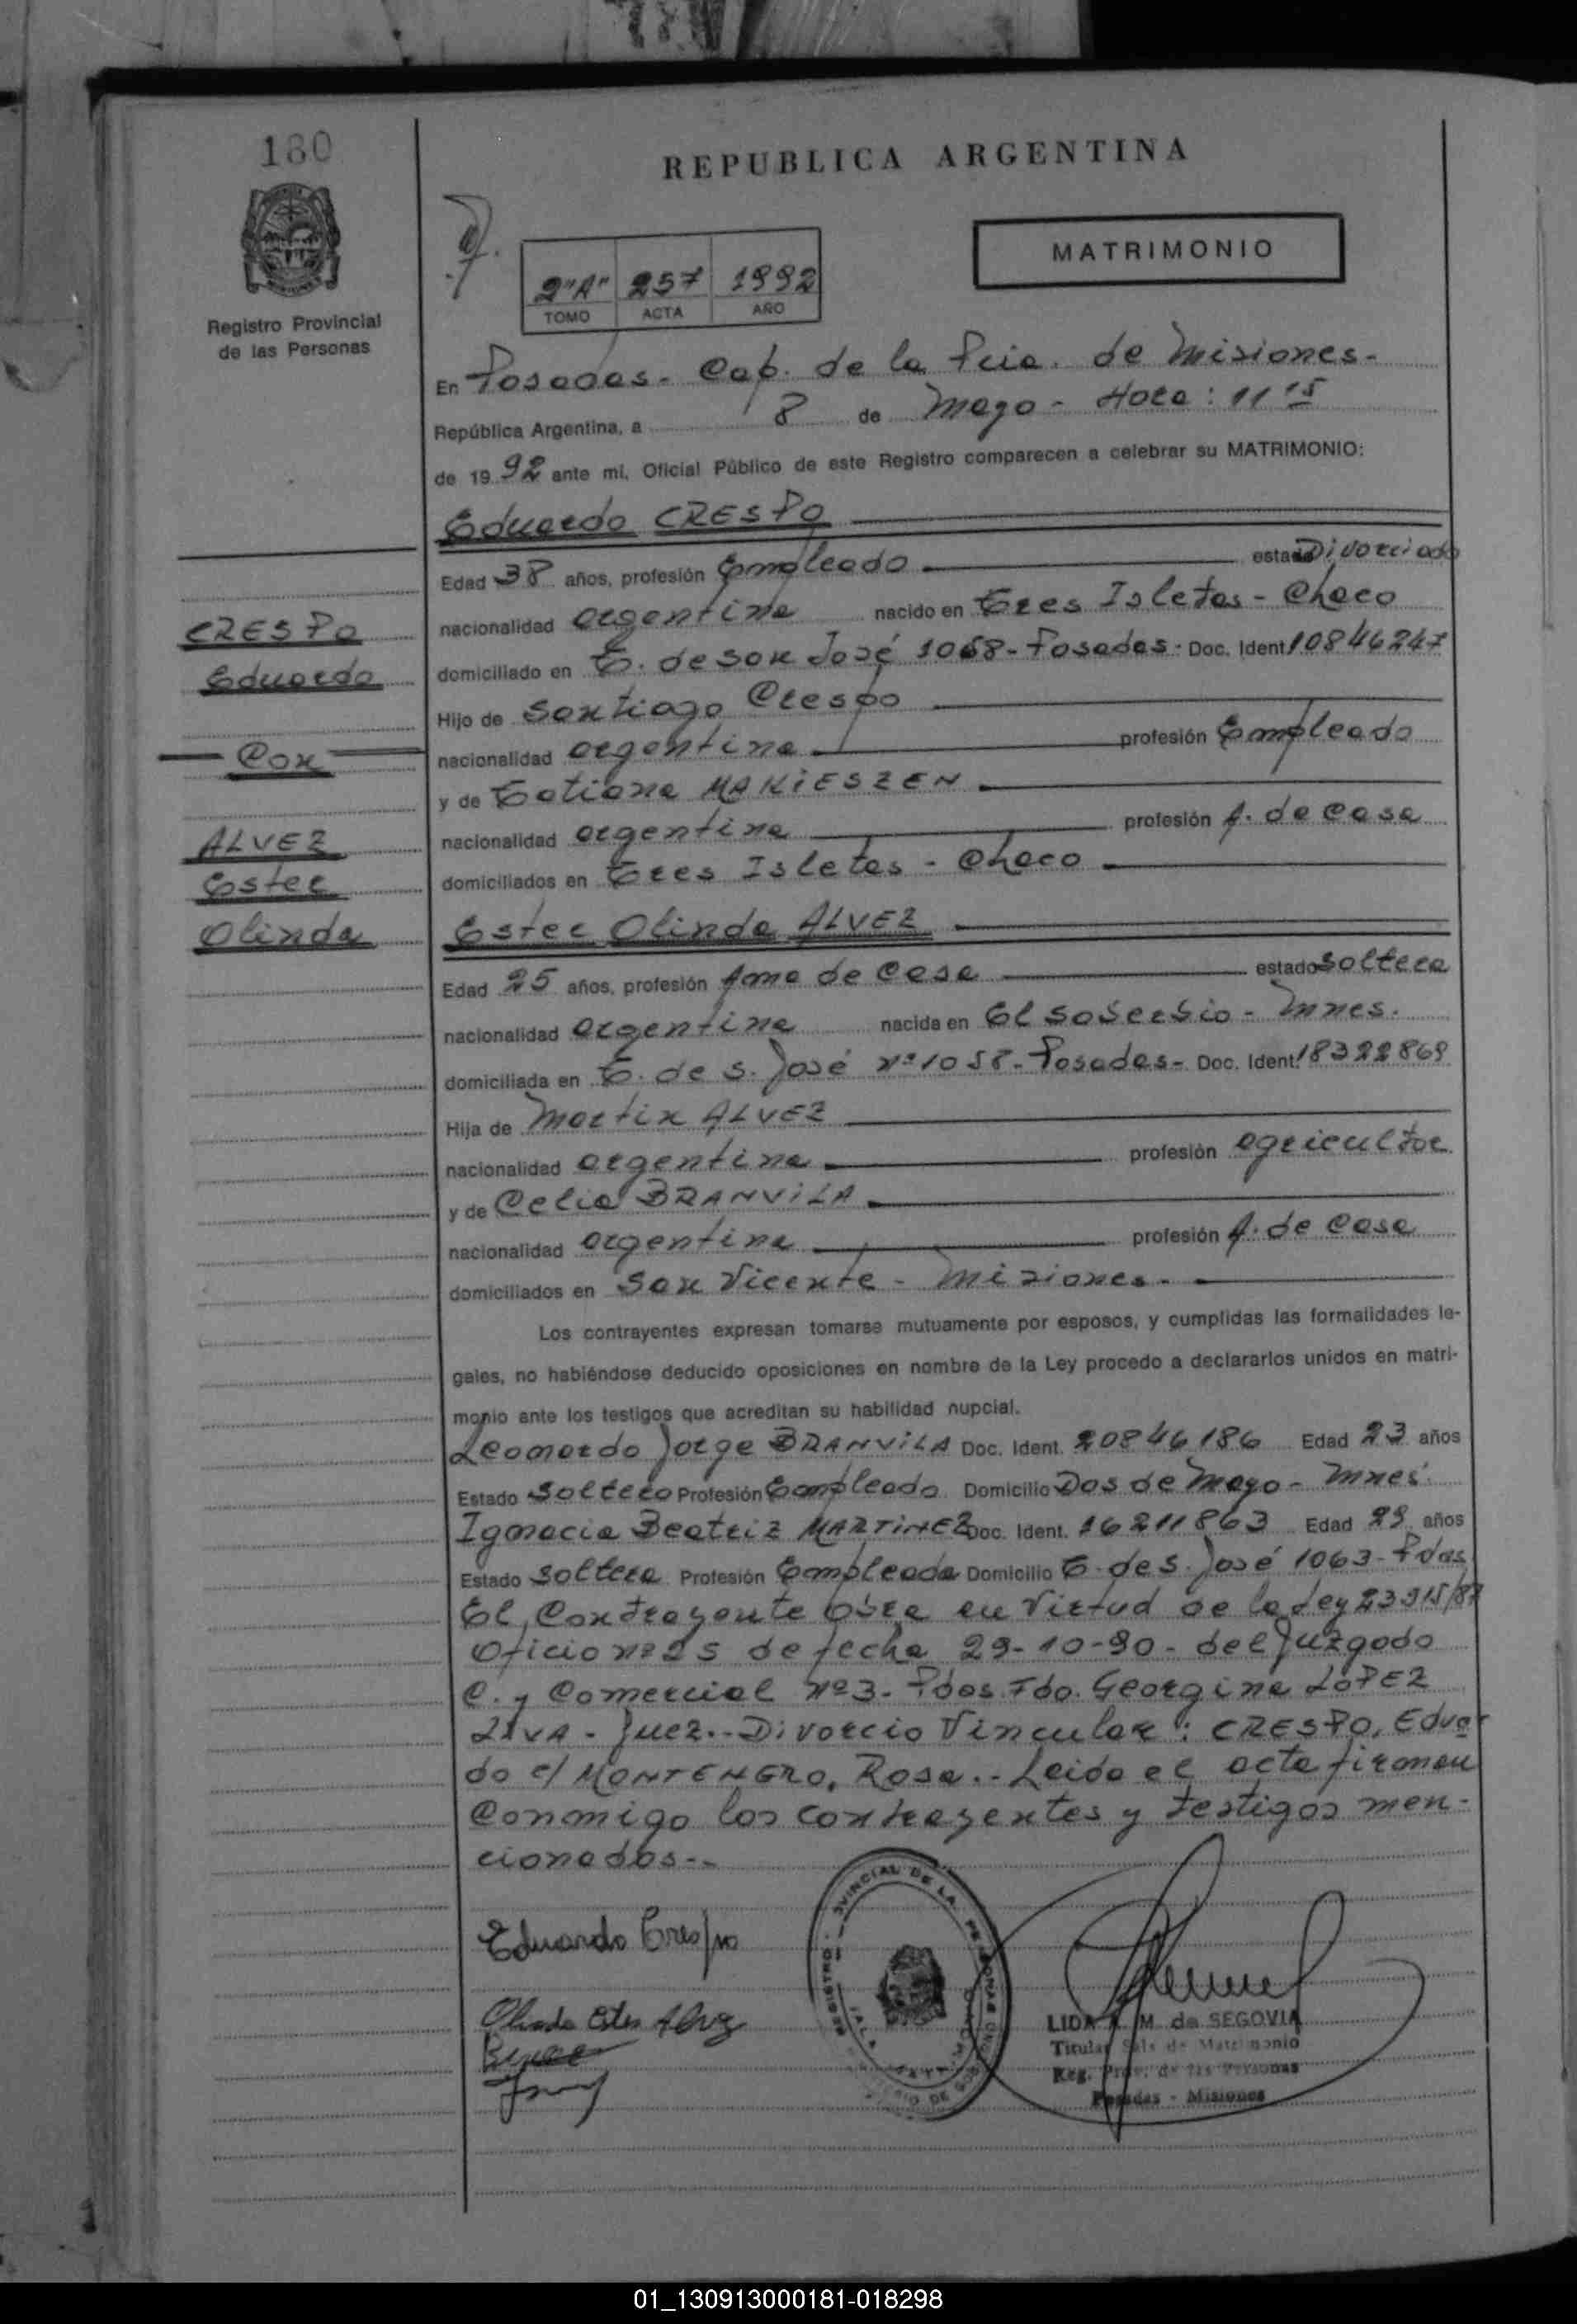 180
REPUBLICA ARGENTINA
MATRIMONIO
Registro Provincial
de las Personas
2"A" 257 1992
TOMO ACTA AÑO
En Posadas - Cap. de la Pcia. de Misiones -
República Argentina, a 8 de Mayo - Hora: 11 15
de 1992 ante mi, Oficial Público de este Registro comparecen a celebrar su MATRIMONIO:
Eduardo CRESPO
Edad 38 años, profesión Empleado estado Divorciado
nacionalidad argentina nacido en Tres Isletas - Chaco
domiciliado en T. de San José 1058 - Posadas - Doc. Ident 10846247
Hijo de Santiago Crespo
nacionalidad argentina profesión Empleado
y de Tatiana MAKIESZEN
nacionalidad argentina profesión A. de Casa
domiciliados en Tres Isletas - Chaco
CRESPO
Eduardo
Con
ALVEZ
Ester
Olinda
Ester Olinda ALVEZ
Edad 25 años, profesión Ama de Casa estado Soltera
nacionalidad argentina nacida en El Soberbio - Mnes.
domiciliada en T. de S. José nº 1058 - Posadas - Doc. Ident. 18322869
Hija de Martin ALVEZ
nacionalidad argentina profesión agricultor
y de Celia BRANVILA
nacionalidad argentina profesión A. de Casa
domiciliados en San Vicente - Misiones -
Los contrayentes expresan tomarse mutuamente por esposos, y cumplidas las formalidades le-
gales, no habiéndose deducido oposiciones en nombre de la Ley procedo a declararlos unidos en matri-
monio ante los testigos que acreditan su habilidad nupcial.
Leonardo Jorge BRANVILA Doc. Ident. 20846186 Edad 23 años
Estado Soltero Profesión Empleado Domicilio Dos de Mayo - Mnes.
Ignacia Beatriz MARTINEZ Doc. Ident. 16211863 Edad 29 años
Estado Soltera Profesión Empleada Domicilio T. de S. José 1063 - Pdas
El Contrayente obra en Virtud de la Ley 23515/87
Oficio nº 25 de fecha 29-10-90 - del Juzgado
C. y Comercial nº 3 - Pdas. Fdo. Georgina LOPEZ
LIVA - Juez.- Divorcio Vincular: CRESPO, Eduar
do c/ MONTENEGRO, Rosa.- Leida el acta firman
Conmigo los contrayentes y testigos men-
cionados.-
Eduardo Crespo
Olinda Ester Alvez
LIDA M. de SEGOVIA
Titular Sala de Matrimonio
Reg. Prov. de las Personas
Posadas - Misiones
01_130913000181-018298